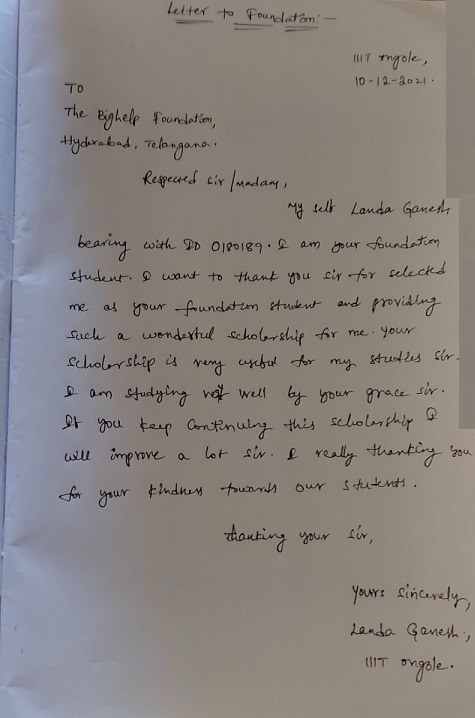 Letter to Foundation:-
IIIT ongole,
10-12-2021.
TO
The Bighelp Foundation,
Hyderabad, Telangana.
Respected Sir/Madam,
My self Landa Ganesh
bearing with ID O180189. I am your foundation
student. I want to thank you sir for selected
me as your foundation student and providing
such a wonderful scholarship for me. Your
scholarship is very useful for my studies sir.
I am studying well by your grace sir.
If you keep continuing this scholarship I
will improve a lot sir. I really thanking you
for your kindness towards our students.
thanking your sir,
Yours sincerely,
Landa Ganesh,
IIIT ongole.